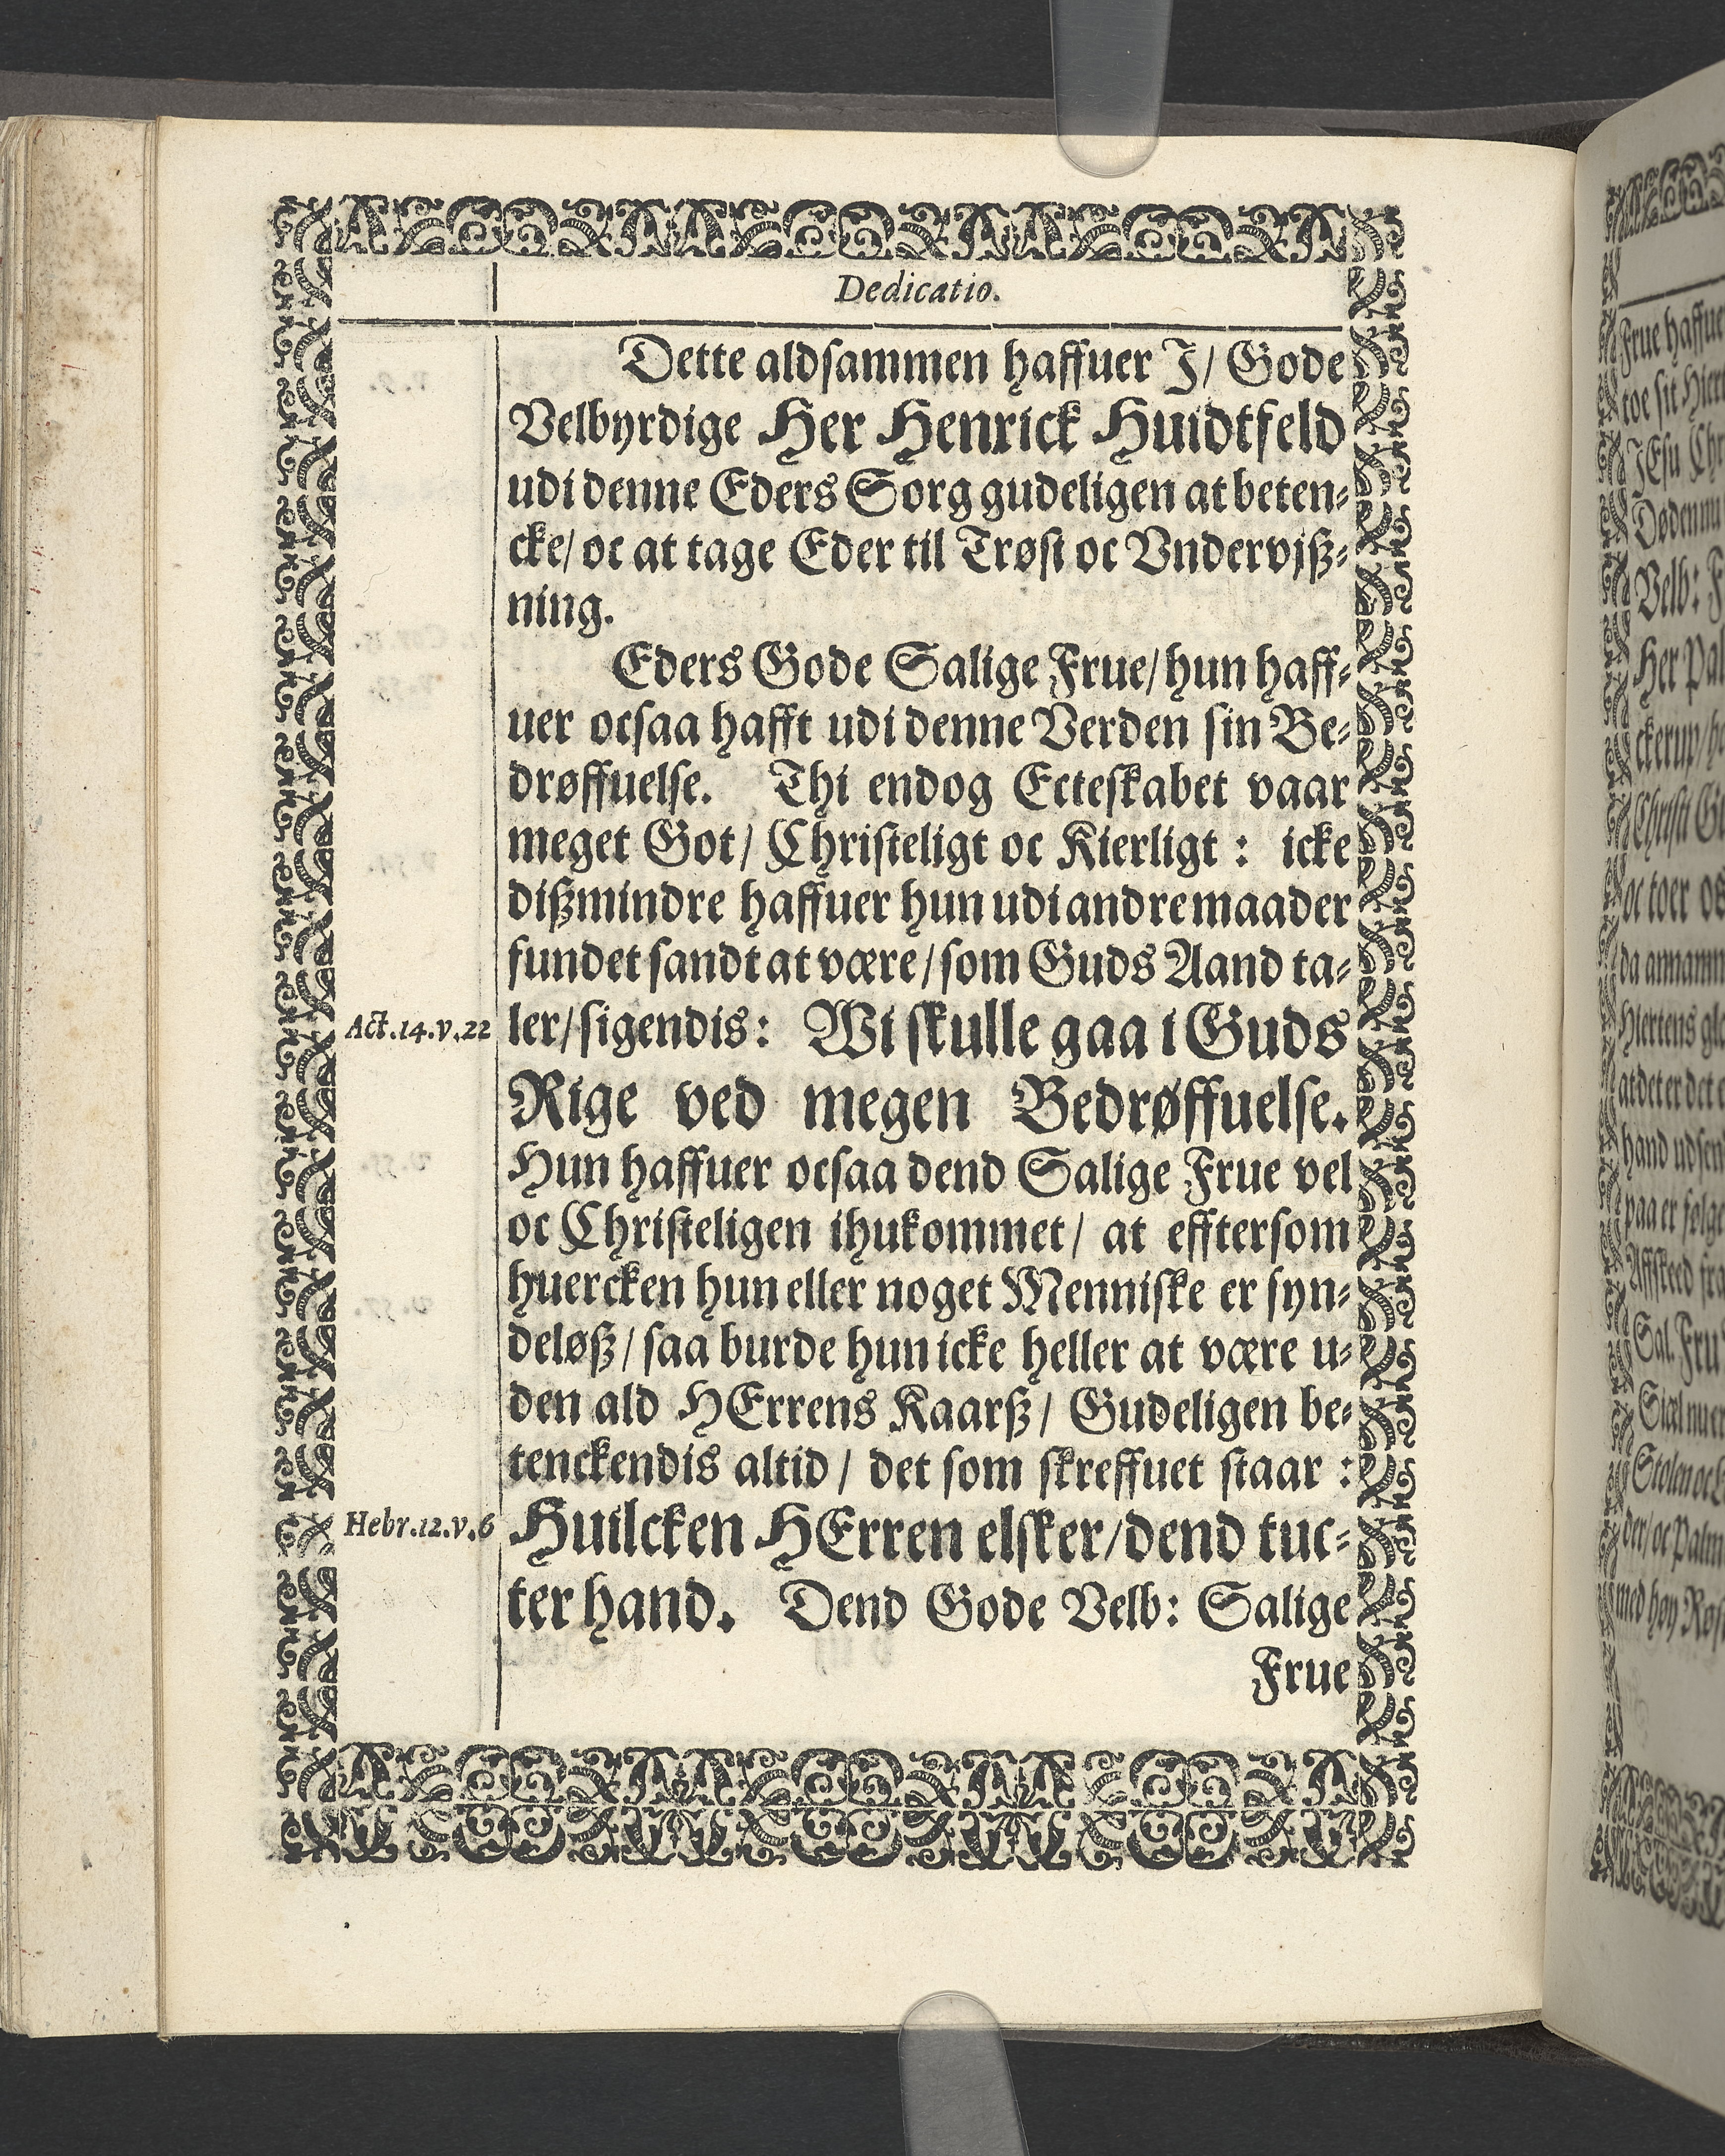 Dedicatio.
Dette aldsammen haffuer J/ Gode
Velbyrdige Her Henrick Huidtfeld
udi denne Eders Sorg gudeligen at beten-
cke/ oc at tage Eder til Trøst oc Vndervjß-
ning.
Eders Gode Salige Frue/ hun haff-
uer ocsaa hafft udi denne Verden sin Be-
drøffuelse. Thi endog Ecteskabet vaar
meget Got/ Christeligt oc Kierligt : icke
dißmindre haffuer hun udi andre maader
fundet sandt at være/ som Guds Aand ta-
Act.14.v.22 ler/ sigendis: Wi skulle gaa i Guds
Rige ved megen Bedrøffuelse.
Hun haffuer ocsaa dend Salige Frue vel
oc Christeligen ihukommet/ at efftersom
huercken hun eller noget Menniske er syn-
deløß/ saa burde hun icke heller at være u-
den ald HErrens Kaarß/ Gudeligen be-
tenckendis altid/ det som skreffuet staar :
Hebr.12.v.6 Huilcken HErren elsker/ dend tuc-
ter hand. Dend Gode Velb: Salige
Frue